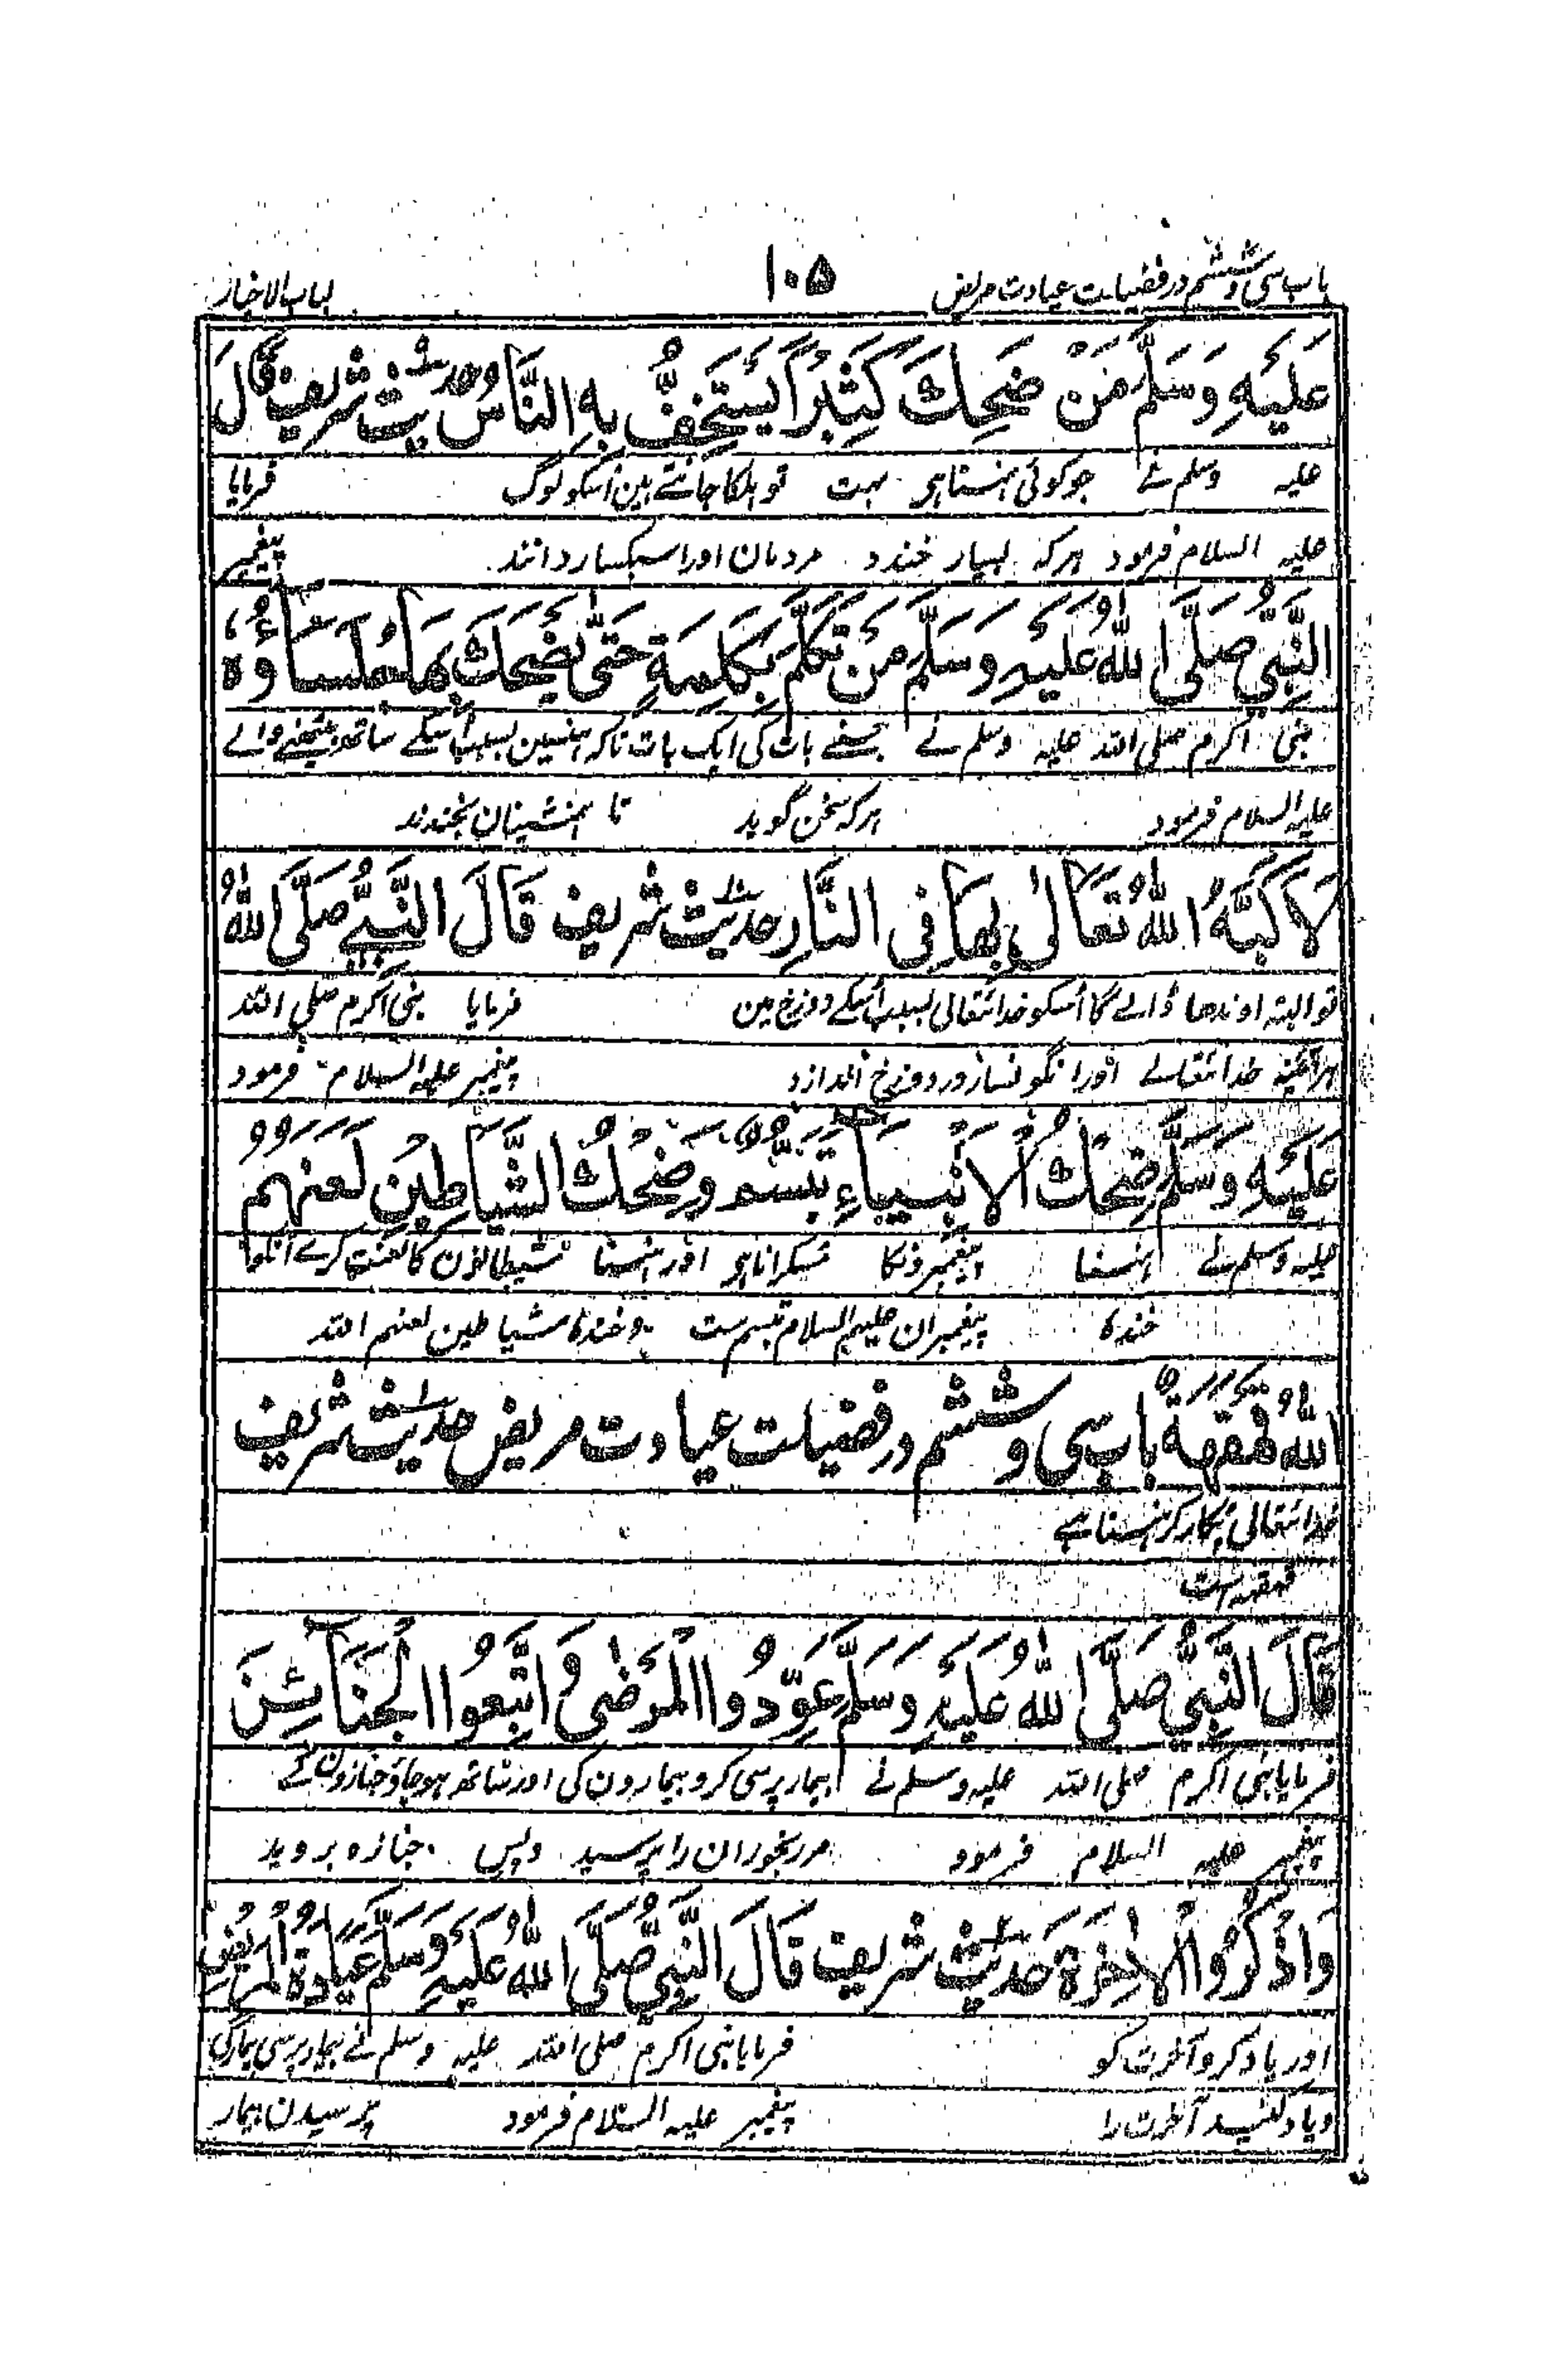 باب سی و ششم در فضیلت عیادت مریض ۱۰۵ لباب الاخبار
عَلَیْهِ وَسَلَّمَ مَنْ ضَحِكَ كَثِیْرًا یَسْتَخِفُّ بِهِ النَّاسُ وحدیث شریف قَالَ
علیہ وسلم نے جو کوئی ہنستا ہی بہت تو ہلکا جانتے ہین اُسکو لوگ فرمایا
علیه السلام فرمود ہرکہ بسیار خندد مردمان اورا سبکسار دانند پیغمبر
النَّبِیُّ صَلَّی اللّٰهُ عَلَیْهِ وَسَلَّمَ مَنْ تَكَلَّمَ بِكَلِمَةٍ حَتّٰی یَضْحَكَ بِهَا جُلَسَاؤُهٗ
نبی اکرم صلی اللہ علیہ وسلم نے جسنے بات کی ایک بات تاکہ ہنسین بسبب اُسکے ساتھ بیٹھنے والے
علیه السلام فرمود ہرکہ سخن گوید تا ہمنشینان بخندند
لَاَكَبَّهُ اللّٰهُ تَعَالٰی بِهَا فِی النَّارِ حدیث شریف قَالَ النَّبِیُّ صَلَّی اللّٰهُ
تو البتہ اوندھا ڈالے گا اُسکو خدائتعالی بسبب اُسکے دوزخ مین فرمایا نبی اکرم صلی اللہ
ہرآئینہ خدائتعالے اورا نگونسار در دوزخ اندازد پیغمبر علیه السلام فرمود
عَلَیْهِ وَسَلَّمَ ضِحْكُ الْاَنْبِیَاءِ تَبَسُّمٌ وَضِحْكُ الشَّیَاطِیْنِ لَعَنَهُمُ
علیہ وسلم نے ہنسنا پیغمبرونکا مسکرانا ہی اور ہنسنا شیطانون کا لعنت کرے انکو
خندہ پیغمبران علیہم السلام تبسم ست و خندہ شیاطین لعنہم اللہ
اللّٰهُ قَهْقَهَةٌ باب سی و ششم در فضیلت عیادت مریض حدیث شریف
خدائتعالی پکار کر ہنسنا ہے
قہقہہ است
قَالَ النَّبِیُّ صَلَّی اللّٰهُ عَلَیْهِ وَسَلَّمَ عَوِّدُوا الْمَرْضٰی وَاتَّبِعُوا الْجَنَآئِزَ
فرمایا نبی اکرم صلی اللہ علیہ وسلم نے بیمار پرسی کرو بیمارون کی اور ساتھ ہو جاؤ جنازون کے
پیغمبر علیه السلام فرمود مر رنجوران را پرسید و پس جنازہ بروید
وَاذْكُرُوا الْاٰخِرَةَ حدیث شریف قَالَ النَّبِیُّ صَلَّی اللّٰهُ عَلَیْهِ وَسَلَّمَ عِیَادَةُ الْمَرِیْضِ
اور یاد کرو آخرت کو فرمایا نبی اکرم صلی اللہ علیہ وسلم نے بیمار پرسی بیمار کی
و یاد کنید آخرت را پیغمبر علیه السلام فرمود پرسیدن بیمار